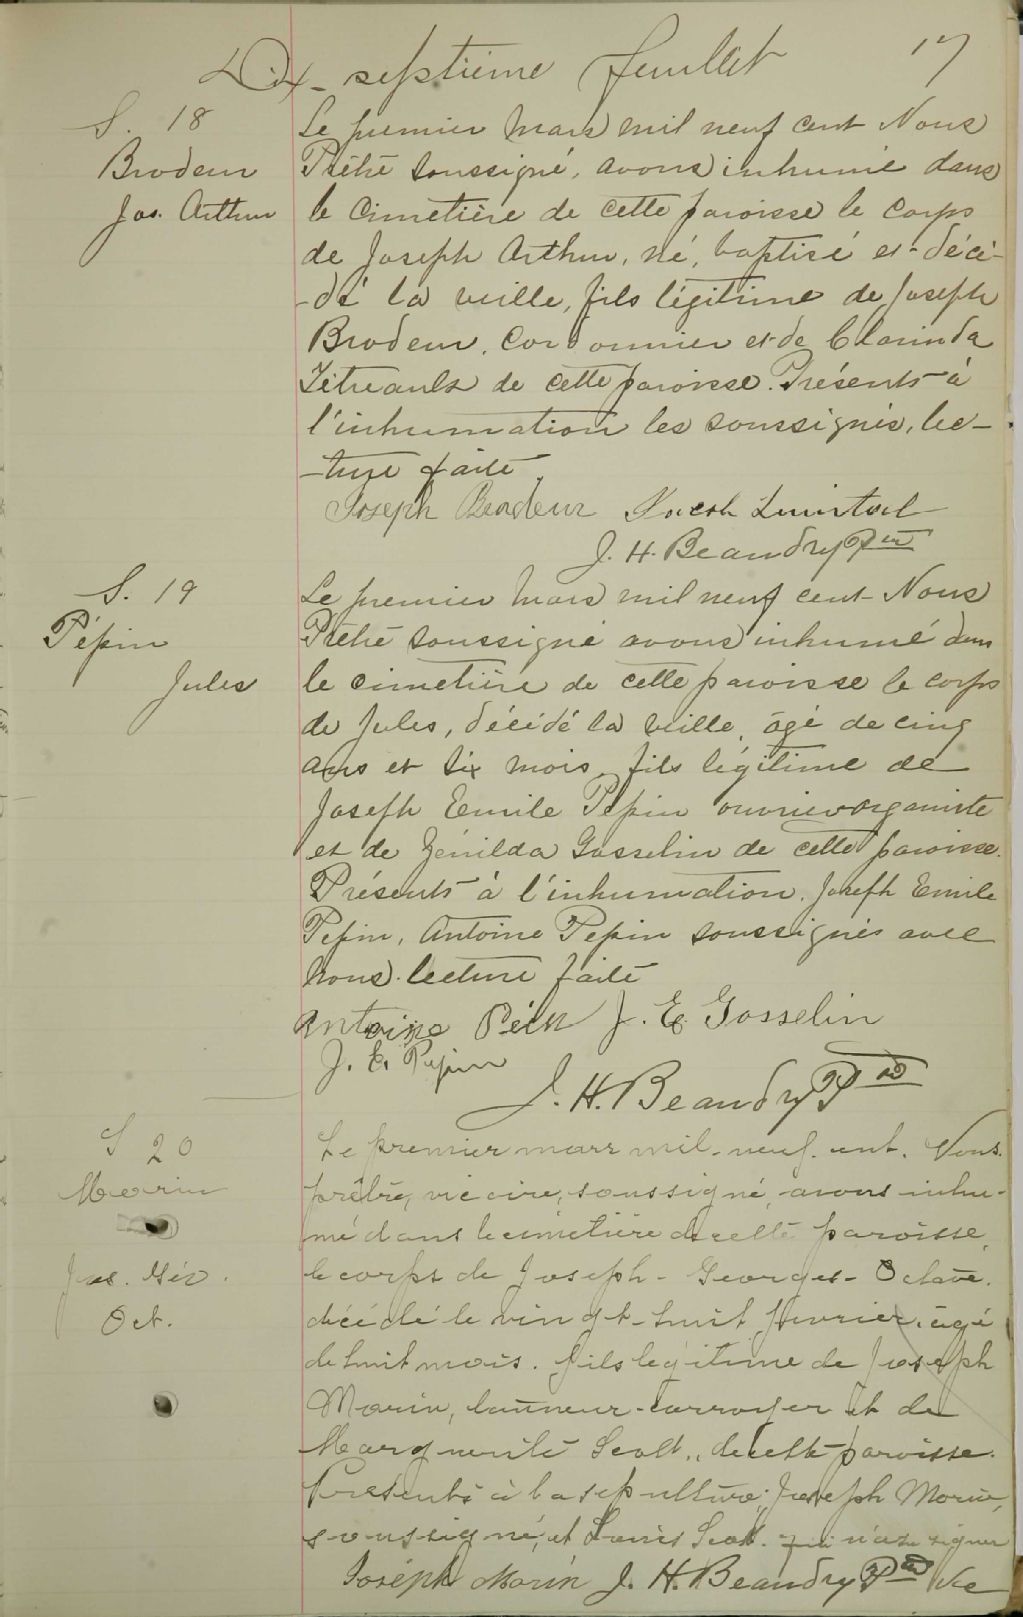 Dix-septième feuillet 17
S. 18
Brodeur
Jos. Arthur
Le premier Mars mil neuf cent Nous
Prêtre soussigné, avons inhumé dans
le Cimetière de cette paroisse le corps
de Joseph Arthur, né, baptisé et décé-
-dé la veille, fils légitime de Joseph
Brodeur, Cordonnier et de Clarinda
Tétreault de cette paroisse. Présents à
l'inhumation les soussignés, lec-
-ture faite.
Joseph Brodeur
J. H. Beaudry Ptre
S. 19
Pépin
Jules
Le premier Mars mil neuf cent Nous
Prêtre soussigné avons inhumé dans
le cimetière de cette paroisse le corps
de Jules, décédé la veille, âgé de cinq
ans et six mois, fils légitime de
Joseph Emile Pépin ouvrier organiste
et de Zénilda Gosselin de cette paroisse.
Présents à l'inhumation, Joseph Emile
Pepin, Antoine Pepin soussignés avec
nous. lecture faite
Antoine J. E. Gosselin
J. E. Pepin
J. H. Beaudry Ptre
S 20
Morin
Jos. Geo.
Oct.
Le premier mars mil-neuf-cent. Nous
prêtre, vicaire, soussigné, avons inhu-
mé dans le cimetière de cette paroisse,
le corps de Joseph-Georges-Octave.
décédé le vingt-huit février, âgé
de huit mois. fils légitime de Joseph
Morin, tanneur-corroyer et de
Marguerite Scott, de cette paroisse.
Présents à la sépulture, Joseph Morin,
soussigné, et Louis Scott. qui n'a su signer
Joseph Morin J. H. Beaudry Ptre Vic